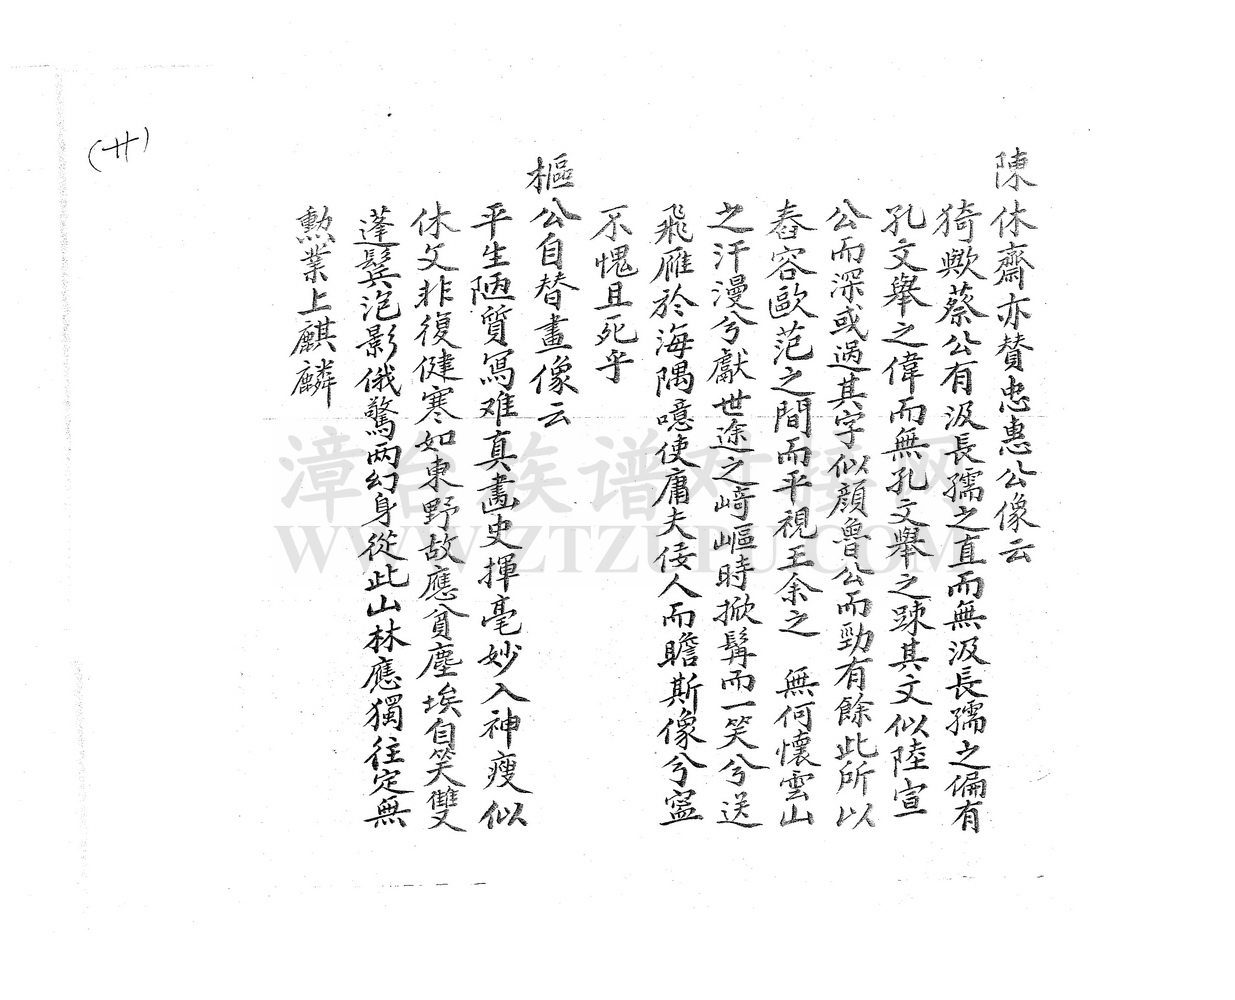 陳休齋亦賛忠惠公像云
猗歟蔡公有汲長孺之直而無汲長孺之偏有
孔文舉之偉而無孔文舉之踈其文似陸宣
公而深或過其字似顔魯公而勁有餘此所以
舂容歐范之間而平視王余之 無何懷雲山
之汗漫兮獻世途之崎嶇時掀髯而一笑兮送
飛雁於海隅噫使庸夫佞人而瞻斯像兮寧
不愧且死乎
樞公自替畫像云
平生陋質寫难真畵史揮毫妙入神瘦似
休文非復健寒如東野故應貧塵埃自笑雙
蓬鬂泡影俄驚两幻身從此山林應獨往定無
勲業上麒麟
(廿)
漳台族谱对接网
WWW.ZTZUPU.COM